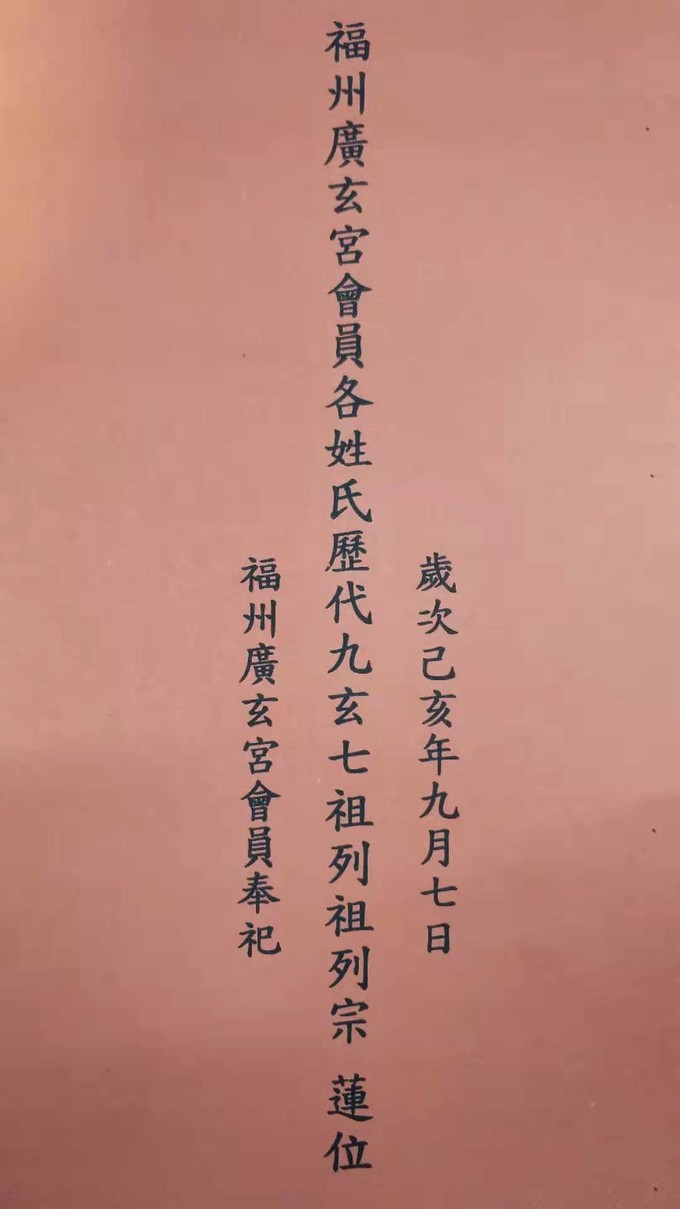 歲次己亥年九月七日
福州廣玄宮會員各姓氏歷代九玄七祖列祖列宗 蓮位
福州廣玄宮會員奉祀